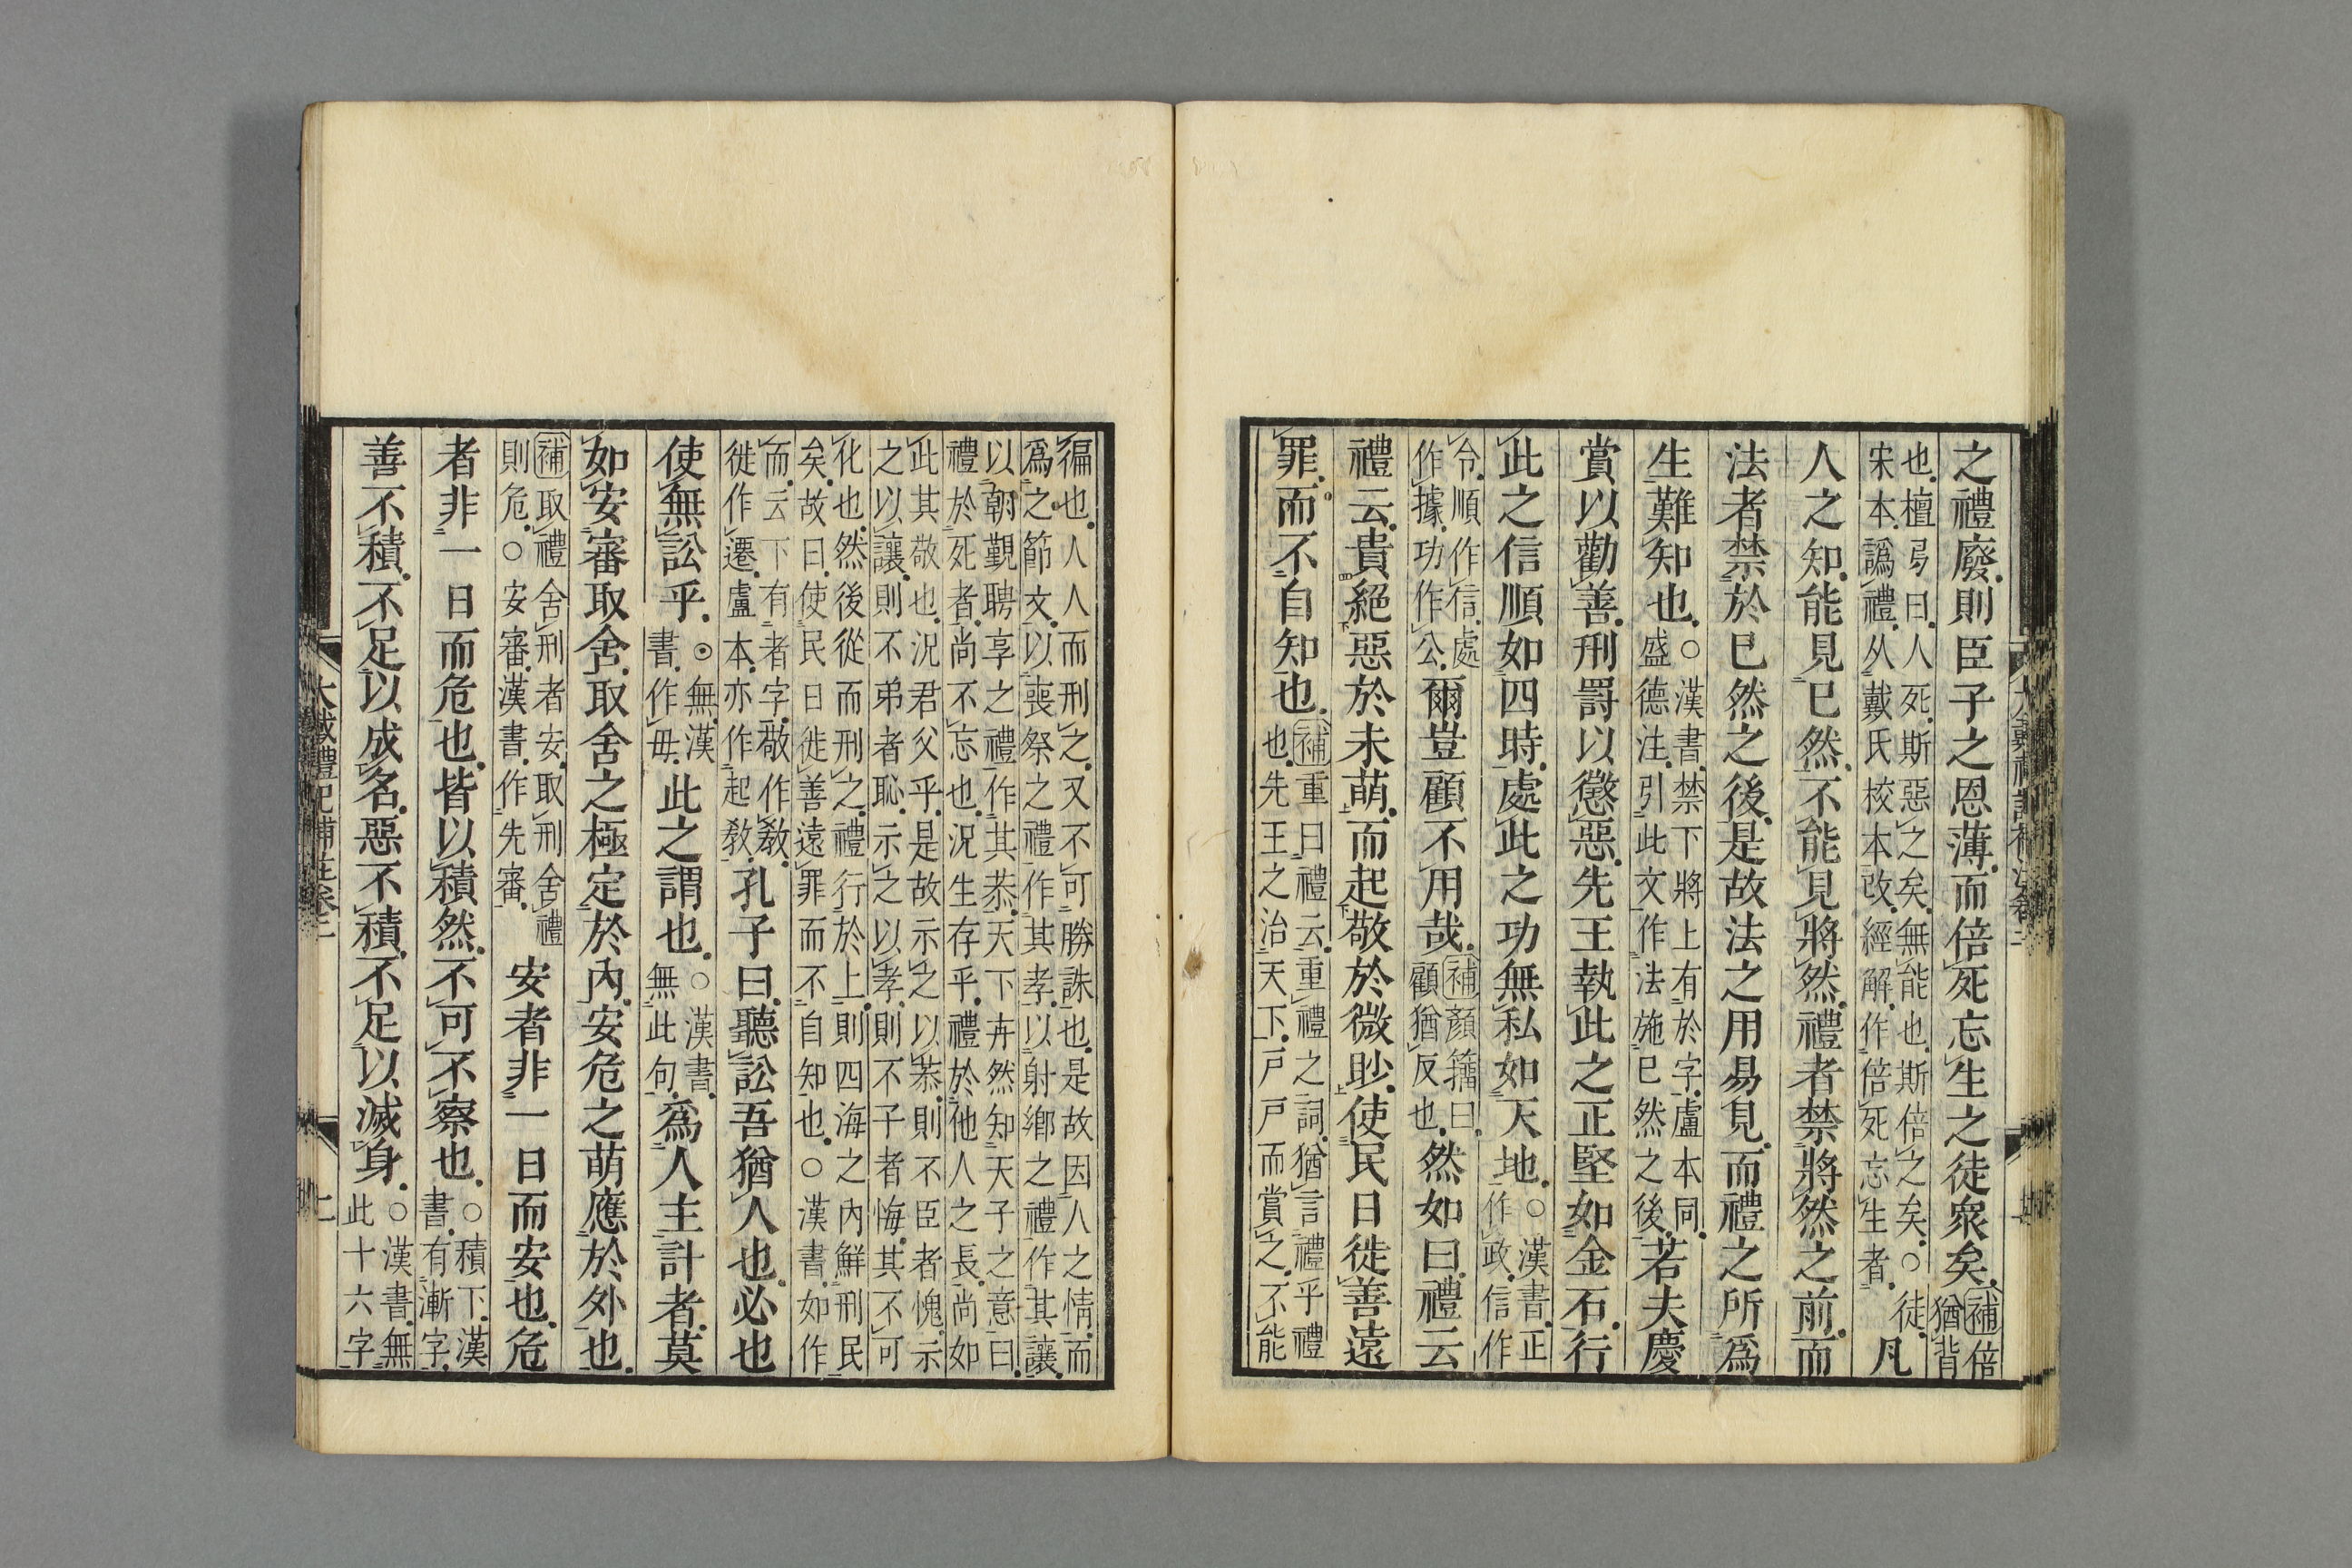 之禮廢則臣子之恩薄而倍死忘生之徒衆矣補倍猶背
也檀弓曰人死斯惡之矣無能也斯倍之矣○徒宋本譌禮从戴氏校本改經解作倍死忘生者凡
人之知能見已然不能見將然禮者禁將然之前而
法者禁於已然之後是故法之用易見而禮之所爲
生難知也○漢書禁下將上有於字盧本同盛德注引此文作法施已然之後若夫慶
賞以勸善刑罰以懲惡先王執此之正堅如金石行
此之信順如四時處此之功無私如天地○漢書正作政信作
令順作信處作據功作公爾豈顧不用哉補顏籀曰顧猶反也然如曰禮云
禮云貴絕惡於未萌而起敬於微眇使民日徙善遠
罪而不自知也補重曰禮云重禮之詞猶言禮乎禮也先王之治天下戸戸而賞之不能
徧也人人而刑之又不可勝誅也是故因人之情而爲之節文以喪祭之禮作其孝以射鄉之禮作其讓
以朝覲聘享之禮作其恭天下卉然知天子之意曰禮於死者尚不忘也況生存乎禮於他人之長尚如
此其敬也況君父乎是故示之以恭則不臣者愧示之以讓則不弟者恥示之以孝則不子者悔其不可
化也然後從而刑之禮行於上則四海之內鮮刑民矣故曰使民日徙善遠罪而不自知也○漢書如作
而云下有者字敬作敎徙作遷盧本亦作起敎孔子曰聽訟吾猶人也必也
使無訟乎⊙無漢書作毋此之謂也○漢書無此句爲人主計者莫
如安審取舍取舍之極定於內安危之萌應於外也
補取禮舍刑者安取刑舍禮則危○安審漢書作先審安者非一日而安也危
者非一日而危也皆以積然不可不察也○積下漢書有漸字
善不積不足以成名惡不積不足以滅身○漢書無此十六字
大戴禮記補注卷二